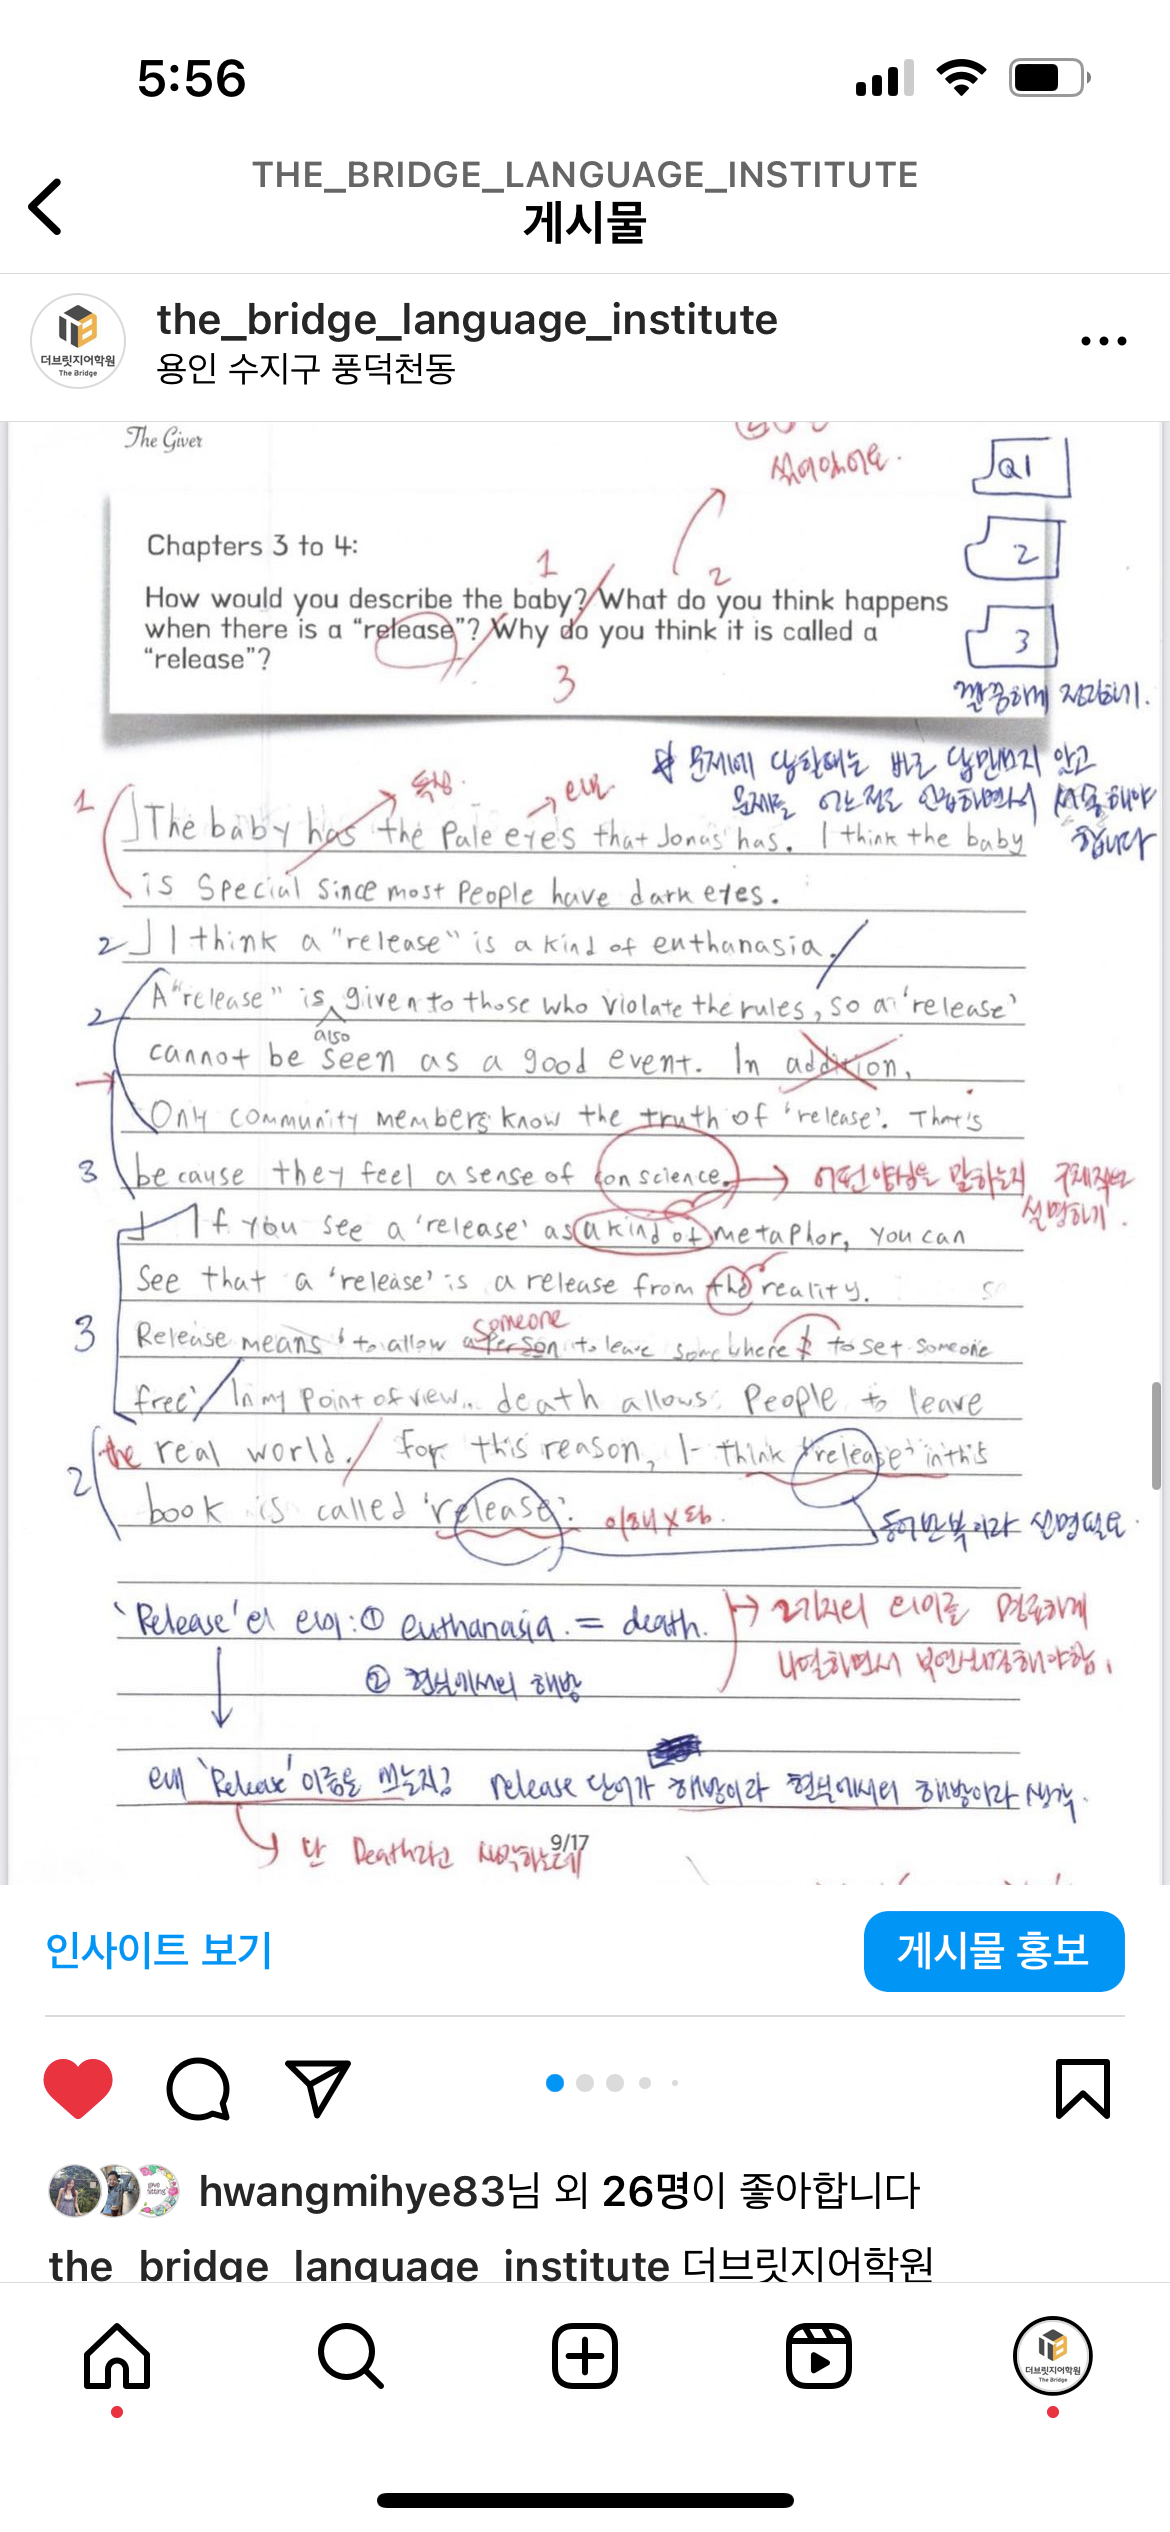 5:56
THE_BRIDGE_LANGUAGE_INSTITUTE
게시물
the_bridge_language_institute
용인 수지구 풍덕천동
더브릿지어학원
The Bridge
The Giver
싶어요.
Q1
2
3
깔끔하게 정리하기.
Chapters 3 to 4:
1
2
How would you describe the baby? What do you think happens
when there is a "release"? Why do you think it is called a
"release"?
3
문제에 답할때는 바로 답만쓰지 않고
문제를 언급하면서 서술해야
합니다
특징.
1
The baby has the Pale eyes that Jonas has. I think the baby
is special since most People have dark eyes.
2 I think a "release" is a kind of euthanasia.
2 A "release" is given to those who violate the rules, so a 'release'
also
cannot be seen as a good event. In addition,
Only community members know the truth of 'release'. That's
3 because they feel a sense of conscience. 어떤 양심을 말하는지 구체적으로
설명하기.
If you see a 'release' as a kind of metaphor, you can
see that a 'release' is a release from the reality.
someone
3 Release means 'to allow a person to leave somewhere to set someone
free' In my point of view, death allows People to leave
the real world. For this reason, I think 'release' in this
2 book is called 'release'. 이해 X
동어반복이라 설명필요.
'Release'의 의미: ① euthanasia. = death. 2가지의 의미를 명료하게
② 현실에서의 해방 나열하면서 부연설명해야함.
왜 'Release' 이름을 쓰는지? release 단어가 해방이라 현실에서의 해방이라 생각.
단 Death라고 생각하는데
9/17
인사이트 보기
게시물 홍보
hwangmihye83님 외 26명이 좋아합니다
the_bridge_language_institute 더브릿지어학원
더브릿지어학원
The Bridge